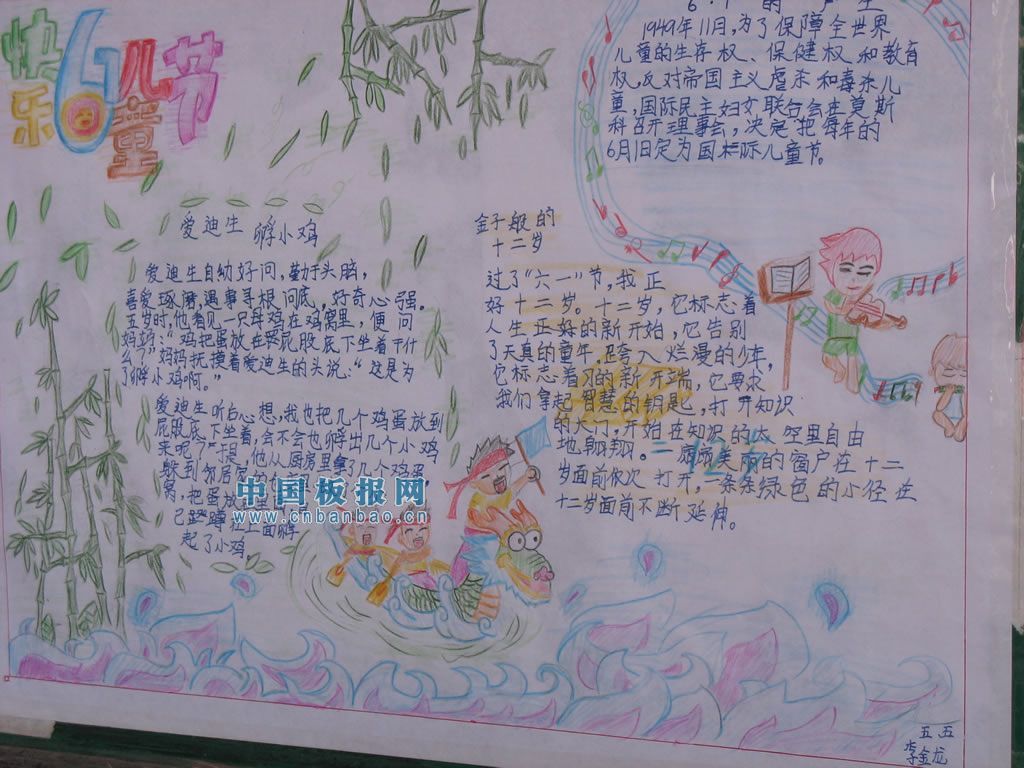 快乐61儿童节
6·1的产生
1949年11月,为了保障全世界
儿童的生存权、保健权和教育
权,反对帝国主义虐杀和毒杀儿
童,国际民主妇女联合会在莫斯
科召开理事会,决定把每年的
6月1日定为国际儿童节。
爱迪生 孵小鸡
爱迪生自幼好问,勤于头脑,
喜爱琢磨,遇事寻根问底,好奇心强。
五岁时,他看见一只母鸡在鸡窝里,便问
妈妈:“鸡把蛋放在屁股底下坐着干什
么?”妈妈抚摸着爱迪生的头说:“这是为
了孵小鸡啊。”
爱迪生听后心想,我也把几个鸡蛋放到
屁股底下坐着,会不会也孵出几个小鸡
来呢?”于是,他从厨房里拿了几个鸡蛋,
躲到邻居
窝,把蛋放
己蹬蹲在上面孵
起了小鸡。
金子般的
十二岁
过了“六一”节,我正
好十二岁。十二岁,它标志着
人生正好的新开始,它告别
了天真的童年,是夸入烂漫的少年,
它标志着的新开端,它要求
我们拿起智慧的钥匙,打开知识
的大门,开始在知识的太空里自由
地翱翔。一扇扇美丽的窗户在十二
岁面前依次打开,一条条绿色的小径在
十二岁面前不断延伸。
中国板报网
www.cnbanbao.cn
五五
李金龙